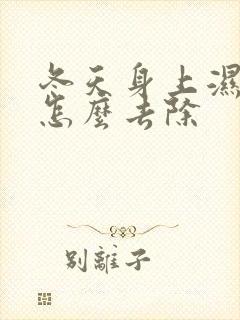 冬天身上濕
怎麼去除
別離子